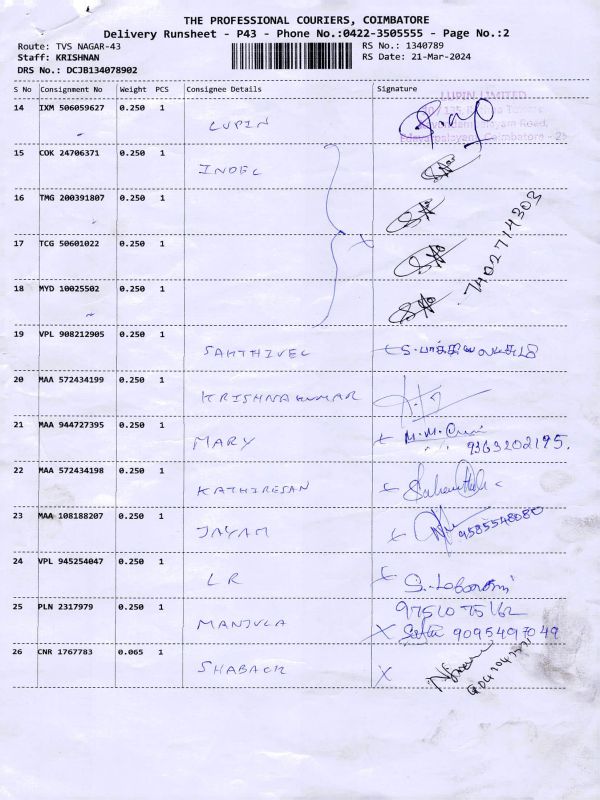 THE PROFESSIONAL COURIERS, COIMBATORE
Delivery Runsheet - P43 - Phone No.:0422-3505555 - Page No.:2
Route: TVS NAGAR-43 RS No.: 1340789
Staff: KRISHNAN RS Date: 21-Mar-2024
DRS No.: DCJB134078902
S No Consignment No Weight PCS Consignee Details Signature
LUPIN LIMITED
14 IXM 506059627 0.250 1 LUPIN
Road,
Coimbatore - 25
15 COK 24706371 0.250 1 INDEL
16 TMG 200391807 0.250 1
17 TCG 50601022 0.250 1
7402714303
18 MYD 10025502 0.250 1
19 VPL 908212905 0.250 1 SAKTHIVEL
20 MAA 572434199 0.250 1 KRISHNAKUMAR
21 MAA 944727395 0.250 1 MARY M.M.
9363202195.
22 MAA 572434198 0.250 1 KATHIRESAN
23 MAA 108188207 0.250 1 JAYAM 9585548080
24 VPL 945254047 0.250 1 LR
25 PLN 2317979 0.250 1 MANJULA 9751075162
9095497049
26 CNR 1767783 0.065 1 SHABACK